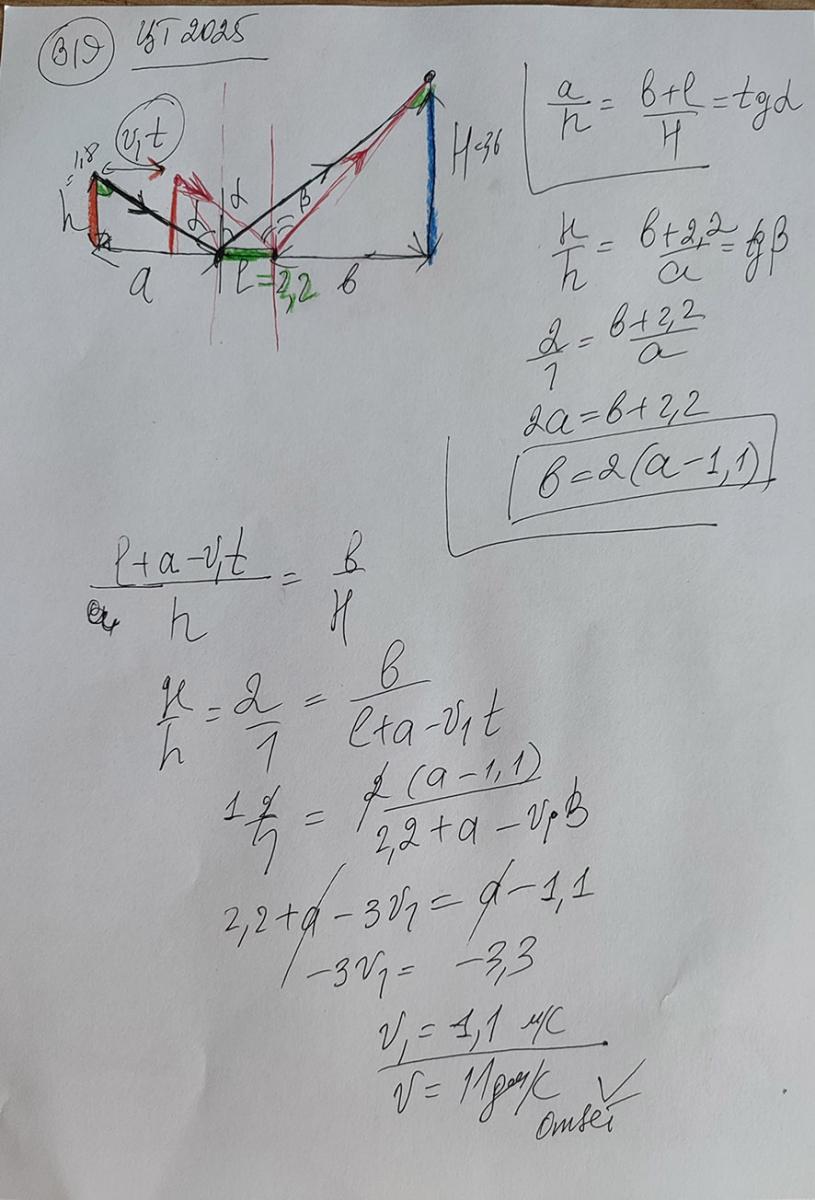 В19 ЦТ 2025
v₁t
=1,8
h
a
α
α
β
l=2,2
в
H=3,6
a/h = (в+l)/H = tgα
H/h = (в+2,2)/a = tgβ
2/1 = (в+2,2)/a
2a = в+2,2
в = 2(a-1,1)
(l+a-v₁t)/h = в/H
H/h = 2/1 = в/(l+a-v₁t)
1 2/1 = 2(a-1,1)/(2,2+a-v₁·3)
2,2+a-3v₁ = a-1,1
-3v₁ = -3,3
v₁ = 1,1 м/с
v = 11 дм/с